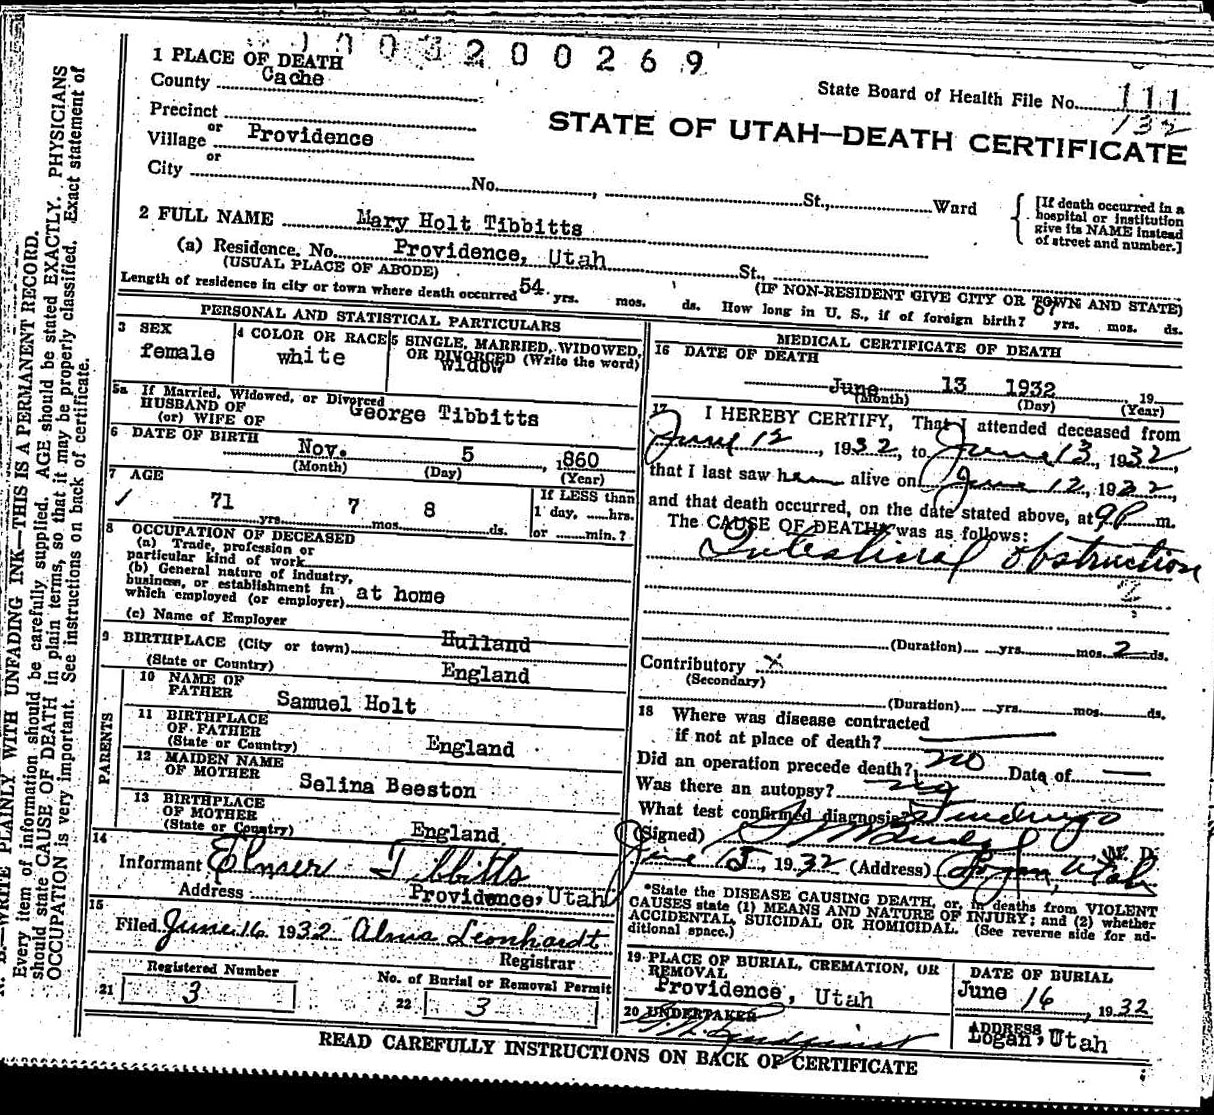 003200269
1 PLACE OF DEATH
County Cache
State Board of Health File No. 111
132
Precinct
or
Village Providence
or
City No. , St., Ward
STATE OF UTAH—DEATH CERTIFICATE
[If death occurred in a
hospital or institution
give its NAME instead
of street and number.]
2 FULL NAME Mary Holt Tibbitts
(a) Residence, No. Providence, Utah St.,
(USUAL PLACE OF ABODE) (IF NON-RESIDENT GIVE CITY OR TOWN AND STATE)
Length of residence in city or town where death occurred 54 yrs. mos. ds. How long in U. S., if of foreign birth? 67 yrs. mos. ds.
PERSONAL AND STATISTICAL PARTICULARS
3 SEX
female
4 COLOR OR RACE
white
5 SINGLE, MARRIED, WIDOWED,
OR DIVORCED (Write the word)
widow
5a If Married, Widowed, or Divorced
HUSBAND OF
(or) WIFE OF George Tibbitts
6 DATE OF BIRTH
Nov. 5, 1860
(Month) (Day) (Year)
7 AGE
71 yrs. 7 mos. 8 ds.
If LESS than
1 day, hrs.
or min.?
8 OCCUPATION OF DECEASED
(a) Trade, profession or
particular kind of work
(b) General nature of industry,
business, or establishment in
which employed (or employer) at home
(c) Name of Employer
9 BIRTHPLACE (City or town) Hulland
(State or Country) England
PARENTS
10 NAME OF
FATHER Samuel Holt
11 BIRTHPLACE
OF FATHER
(State or Country) England
12 MAIDEN NAME
OF MOTHER Selina Beeston
13 BIRTHPLACE
OF MOTHER
(State or Country) England
14
Informant Elmer Tibbitts
Address Providence, Utah
15
Filed June 16 1932 Alma Leonhardt
Registrar
Registered Number
21 3
No. of Burial or Removal Permit
22 3
MEDICAL CERTIFICATE OF DEATH
16 DATE OF DEATH
June 13 1932 19
(Month) (Day) (Year)
17 I HEREBY CERTIFY, That I attended deceased from
June 12, 1932, to June 13, 1932,
that I last saw her alive on June 12, 1932,
and that death occurred, on the date stated above, at 9P m.
The CAUSE OF DEATH* was as follows:
Intestinal obstruction
(Duration) yrs. mos. 2 ds.
Contributory X
(Secondary)
(Duration) yrs. mos. ds.
18 Where was disease contracted
if not at place of death?
Did an operation precede death? no Date of
Was there an autopsy? no
What test confirmed diagnosis?
(Signed) M. D.
June 15, 1932 (Address) Logan, Utah
*State the DISEASE CAUSING DEATH, or, in deaths from VIOLENT
CAUSES state (1) MEANS AND NATURE OF INJURY; and (2) whether
ACCIDENTAL, SUICIDAL OR HOMICIDAL. (See reverse side for ad-
ditional space.)
19 PLACE OF BURIAL, CREMATION, OR
REMOVAL
Providence, Utah
DATE OF BURIAL
June 16, 1932
20 UNDERTAKER
ADDRESS
Logan, Utah
READ CAREFULLY INSTRUCTIONS ON BACK OF CERTIFICATE
N. B.—WRITE PLAINLY WITH UNFADING INK—THIS IS A PERMANENT RECORD.
Every item of information should be carefully supplied. AGE should be stated EXACTLY. PHYSICIANS
should state CAUSE OF DEATH in plain terms, so that it may be properly classified. Exact statement of
OCCUPATION is very important. See instructions on back of certificate.